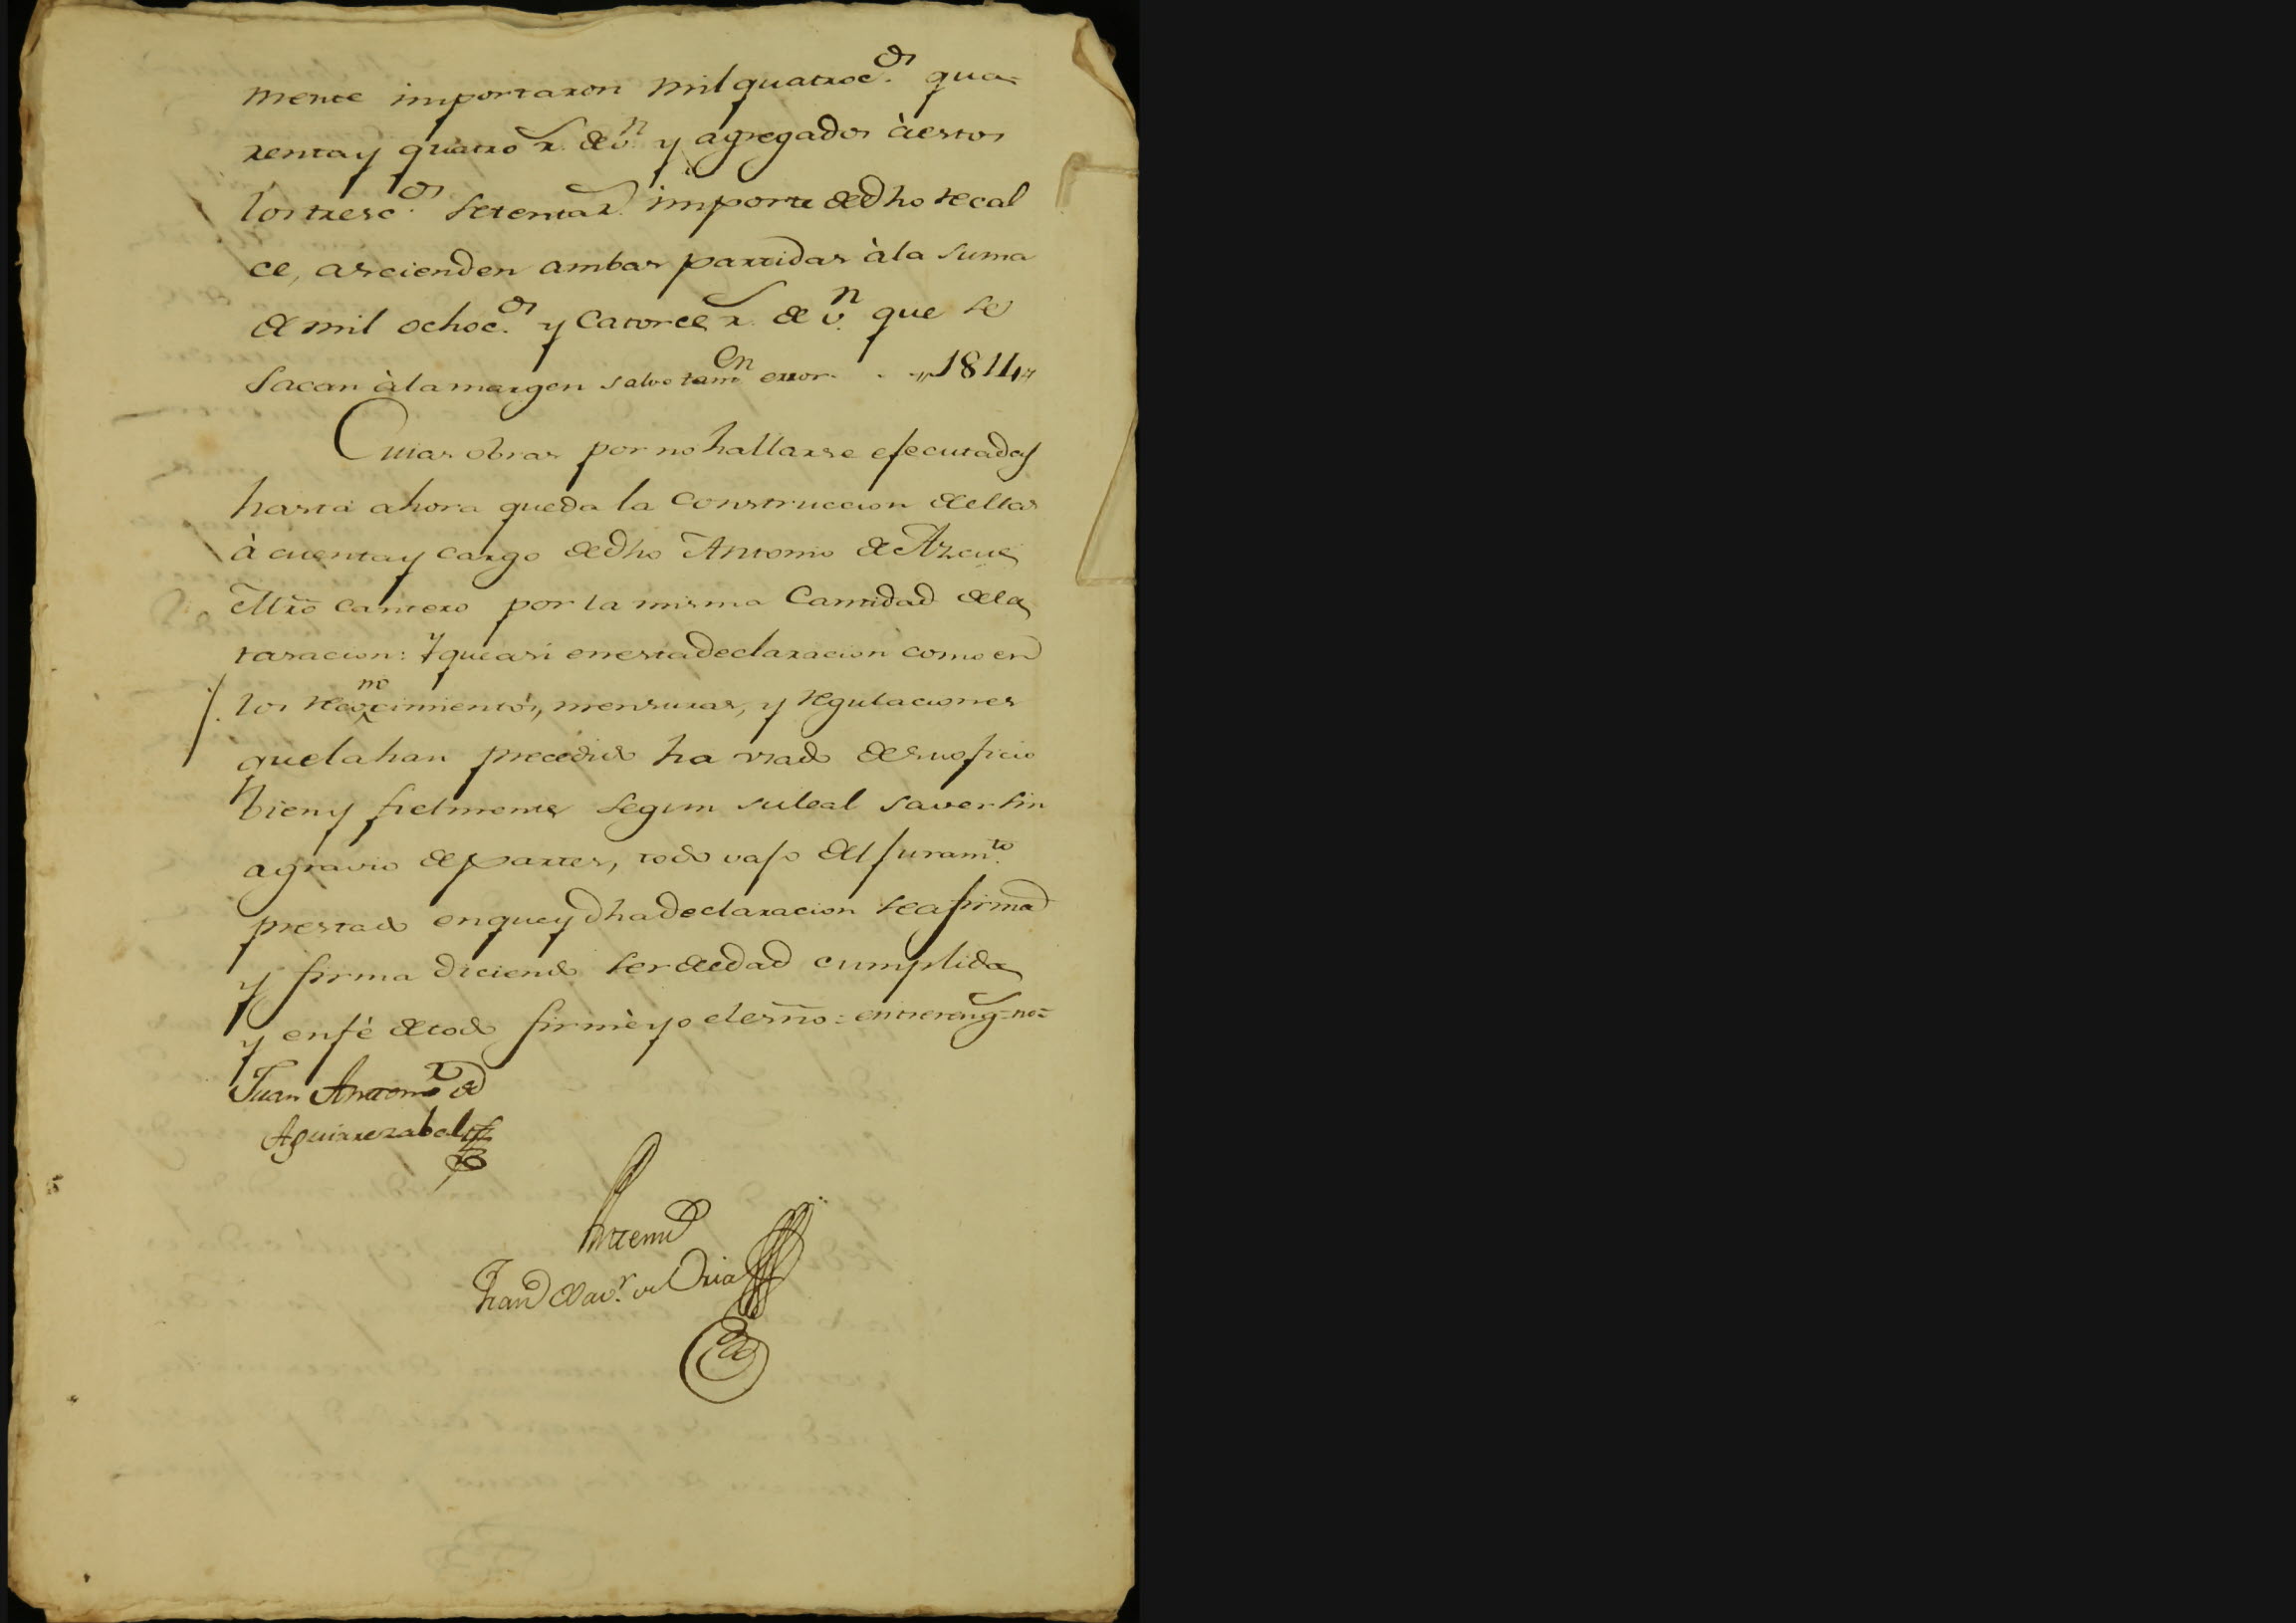 mente importaron mil quatroc.os qua=
renta y quatro r.s de v.n y agregados à estos
los tresc.os setenta r.s importe de dho recal
ce, ascienden ambas partidas à la suma
de mil ochoc.os y catorce r.s de v.n que se
sacan à la margen salvo tam.en error . . „1814„
Cuias obras por no hallarse efecutadas
hasta ahora queda la construccion de ellas
à cuenta y cargo de dho Antonio de Azcue
Mro cantero por la misma Cantidad de la
tasacion: Y que asi en esta declaracion como en
los reco^no cimientos, mensuras, y regulaciones
que la han precedido ha usado de su oficio
bien y fielmente segun su leal saver sin
agravio de partes, todo vajo del juram.to
prestado en que y dha declaracion se afirma
y firma diciendo ser de edad cumplida
y en fè de todo firmè yo el esno = entrereng.s = no =
Juan Antonio de
Aguirrezabal
Antemi
Fran.co Xav.r de Oria